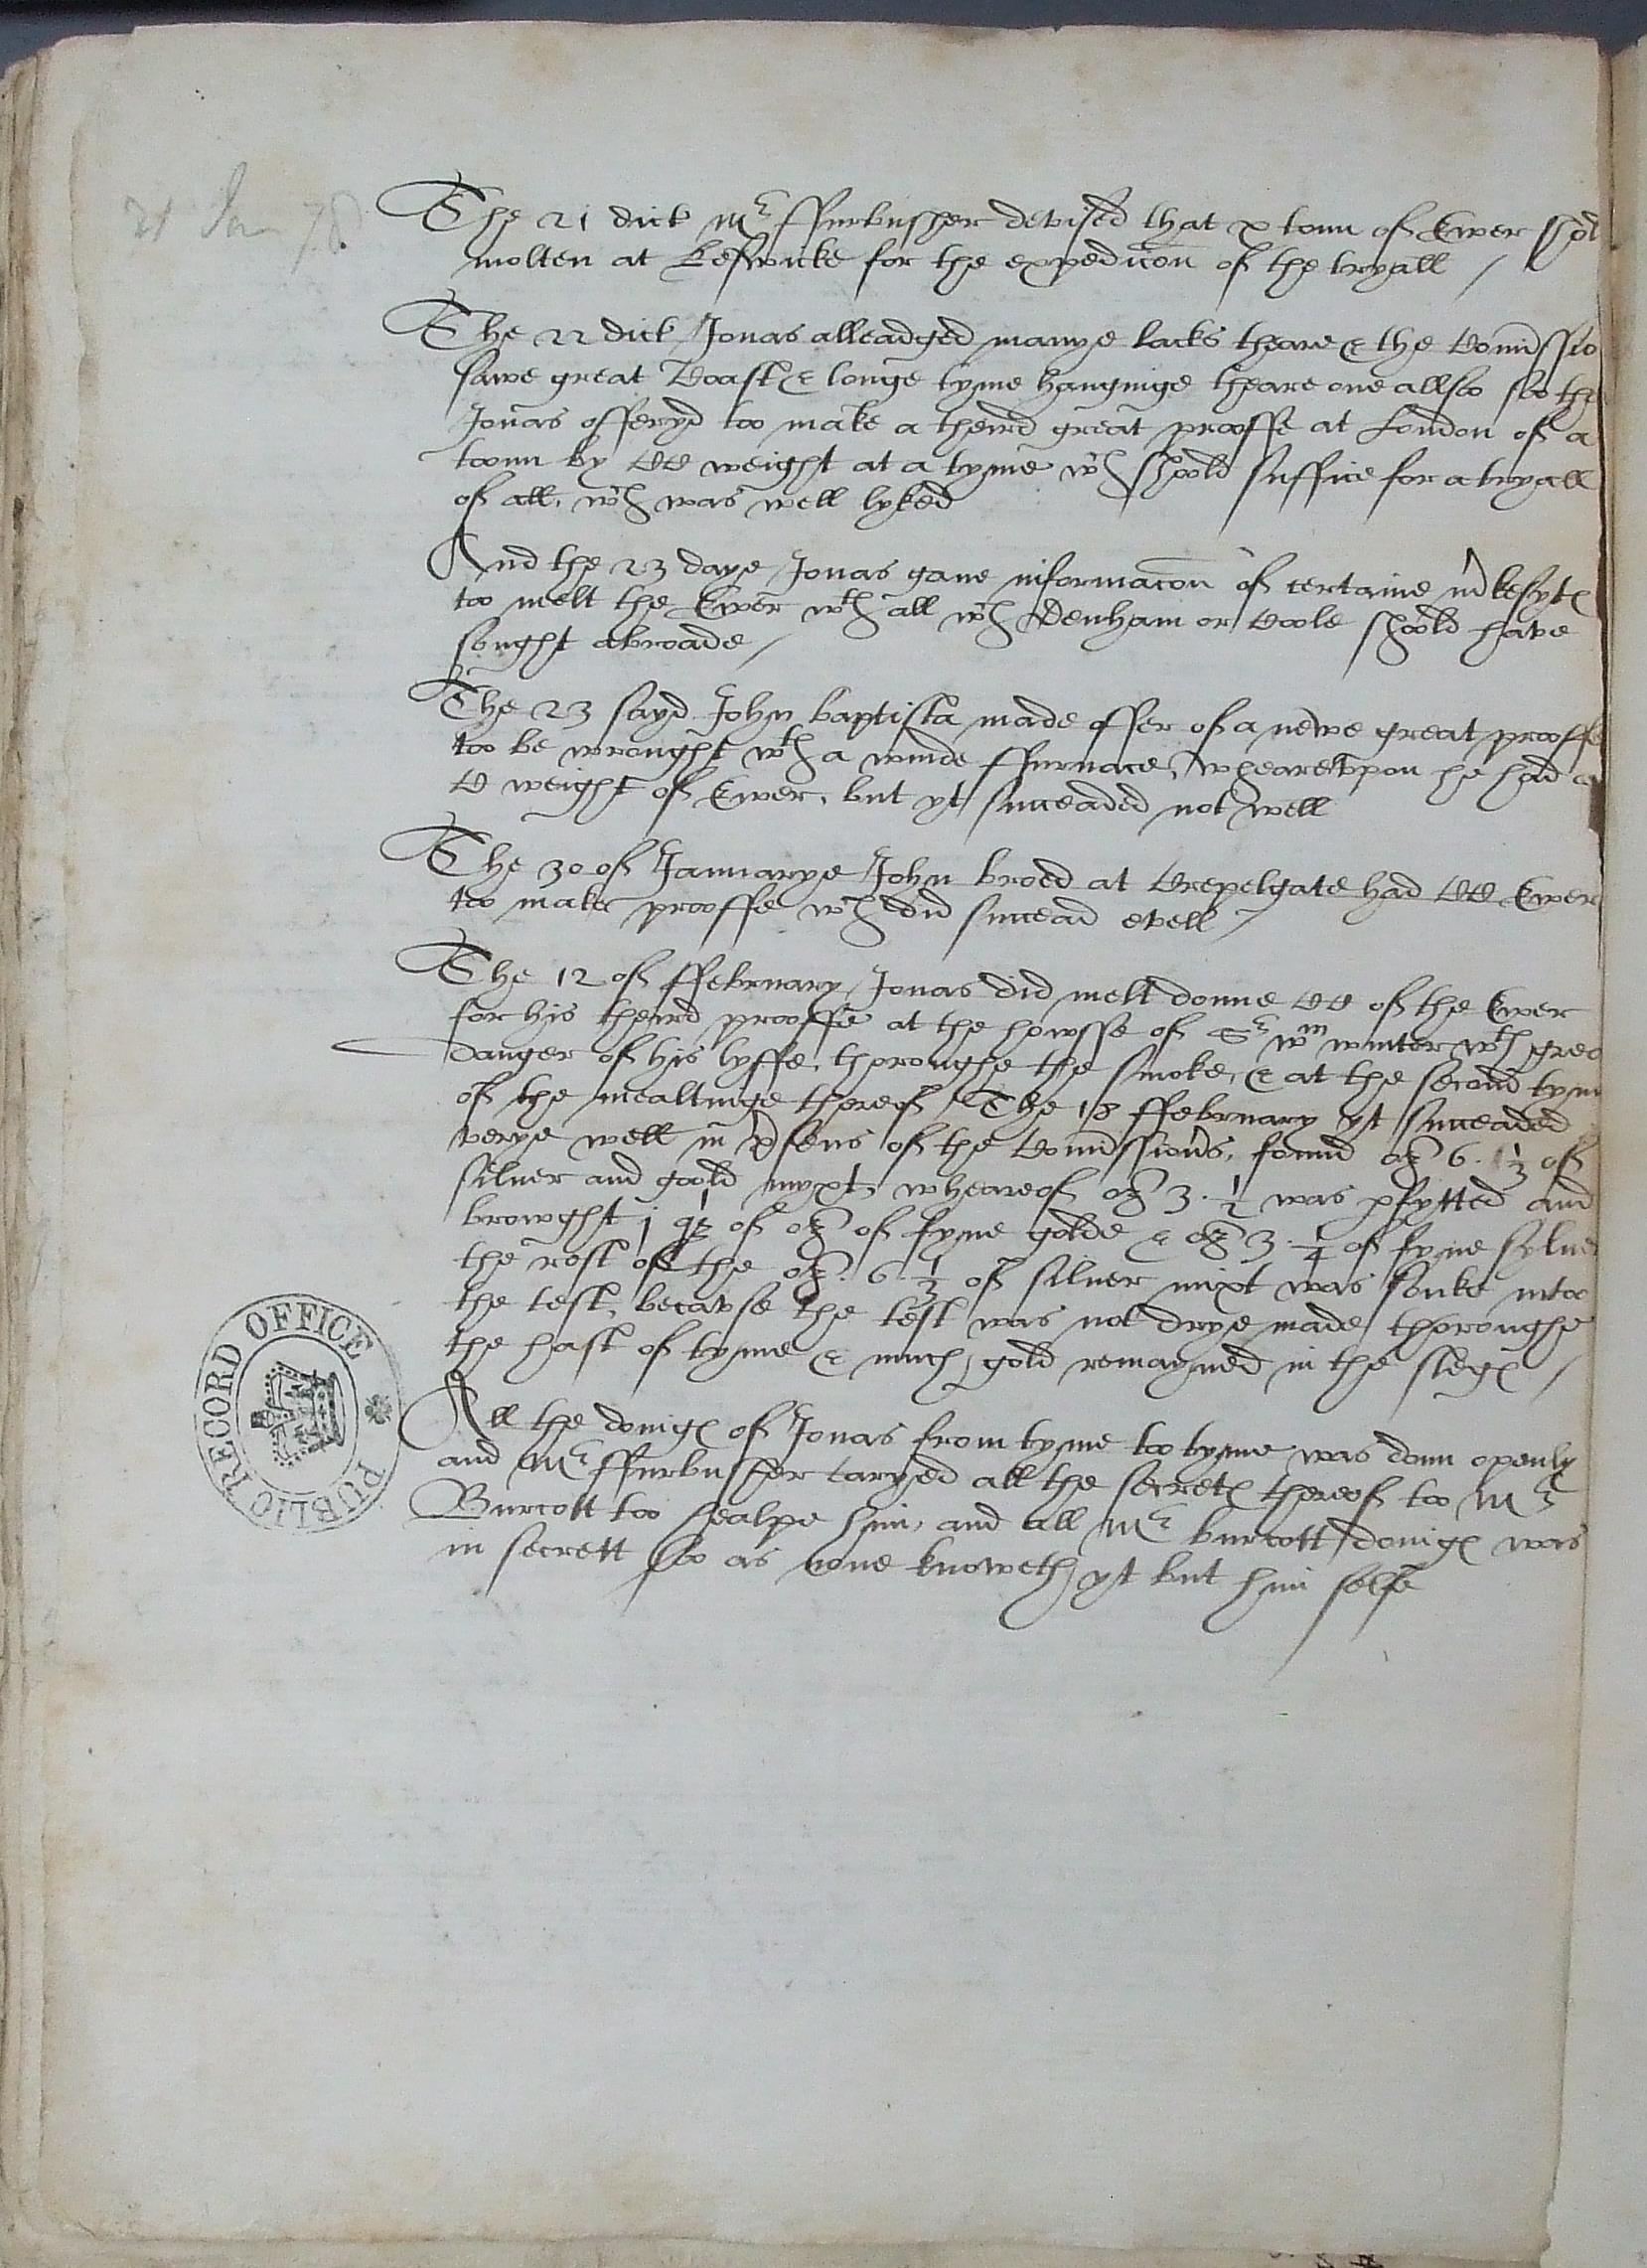 21 Jan 78
The 21 dict Mr ffurbusher devised that x tonn of Ewer shol
molten at Keswicke for the expedicõn of the tryall /
The 22 dict Jonas alleadged manye lacks theare & the Comissio
sawe great Coast & longe tyme hanginge theare one allso so the
Jonas offeryd too make a theird great prooffe at London of a
tonn by CC weight at a tyme wch shoold suffice for a tryall
of all, wch was well lyked
And the 23 daye Jonas gave informacõn of certaine
too melt the Ewer wth all wch Denham or Cole shoold have
sought abroade /
The 23 sayd John baptista made offer of a newe great prooffe
too be wrought wth a winde ffurnace, wheareupon he had a
C weight of Ewer, but yt succeaded not well
The 30 of Januarye John broed at Crepelgate had CC Ewer
too make prooffe wch did succead evell /
The 12 of ffebruary Jonas did melt donne CC of the Ewer
for his theird prooffe at the howsse of Sr Wm winter wth grea
danger of his lyffe, thoroughe the smoke, & at the second tym
of the mealtinge thereof / The 18 ffebruary yt succeaded
verye well in psens of the Comissiors, found oz 6. 1/3 of
silver and goold myxt, wheareof oz 3. 1/2 was pfytted and
browght j of oz of fyne golde & oz 3. 1/4 of fyne sylver
the rest of the oz. 6. 1/3 of silver mixt was sonke into
the test, becavse the test was not drye made thoroughe
the hast of tyme & much gold remayned in the slegs /
All the doings of Jonas from tyme too tyme was donn openly
and Mr ffurbusher caryed all the secrets thereof too Mr
Burcott too healpe him, and all Mr burcott doings was
in secrett so as none knoweth yt but him selfe
PUBLIC RECORD OFFICE